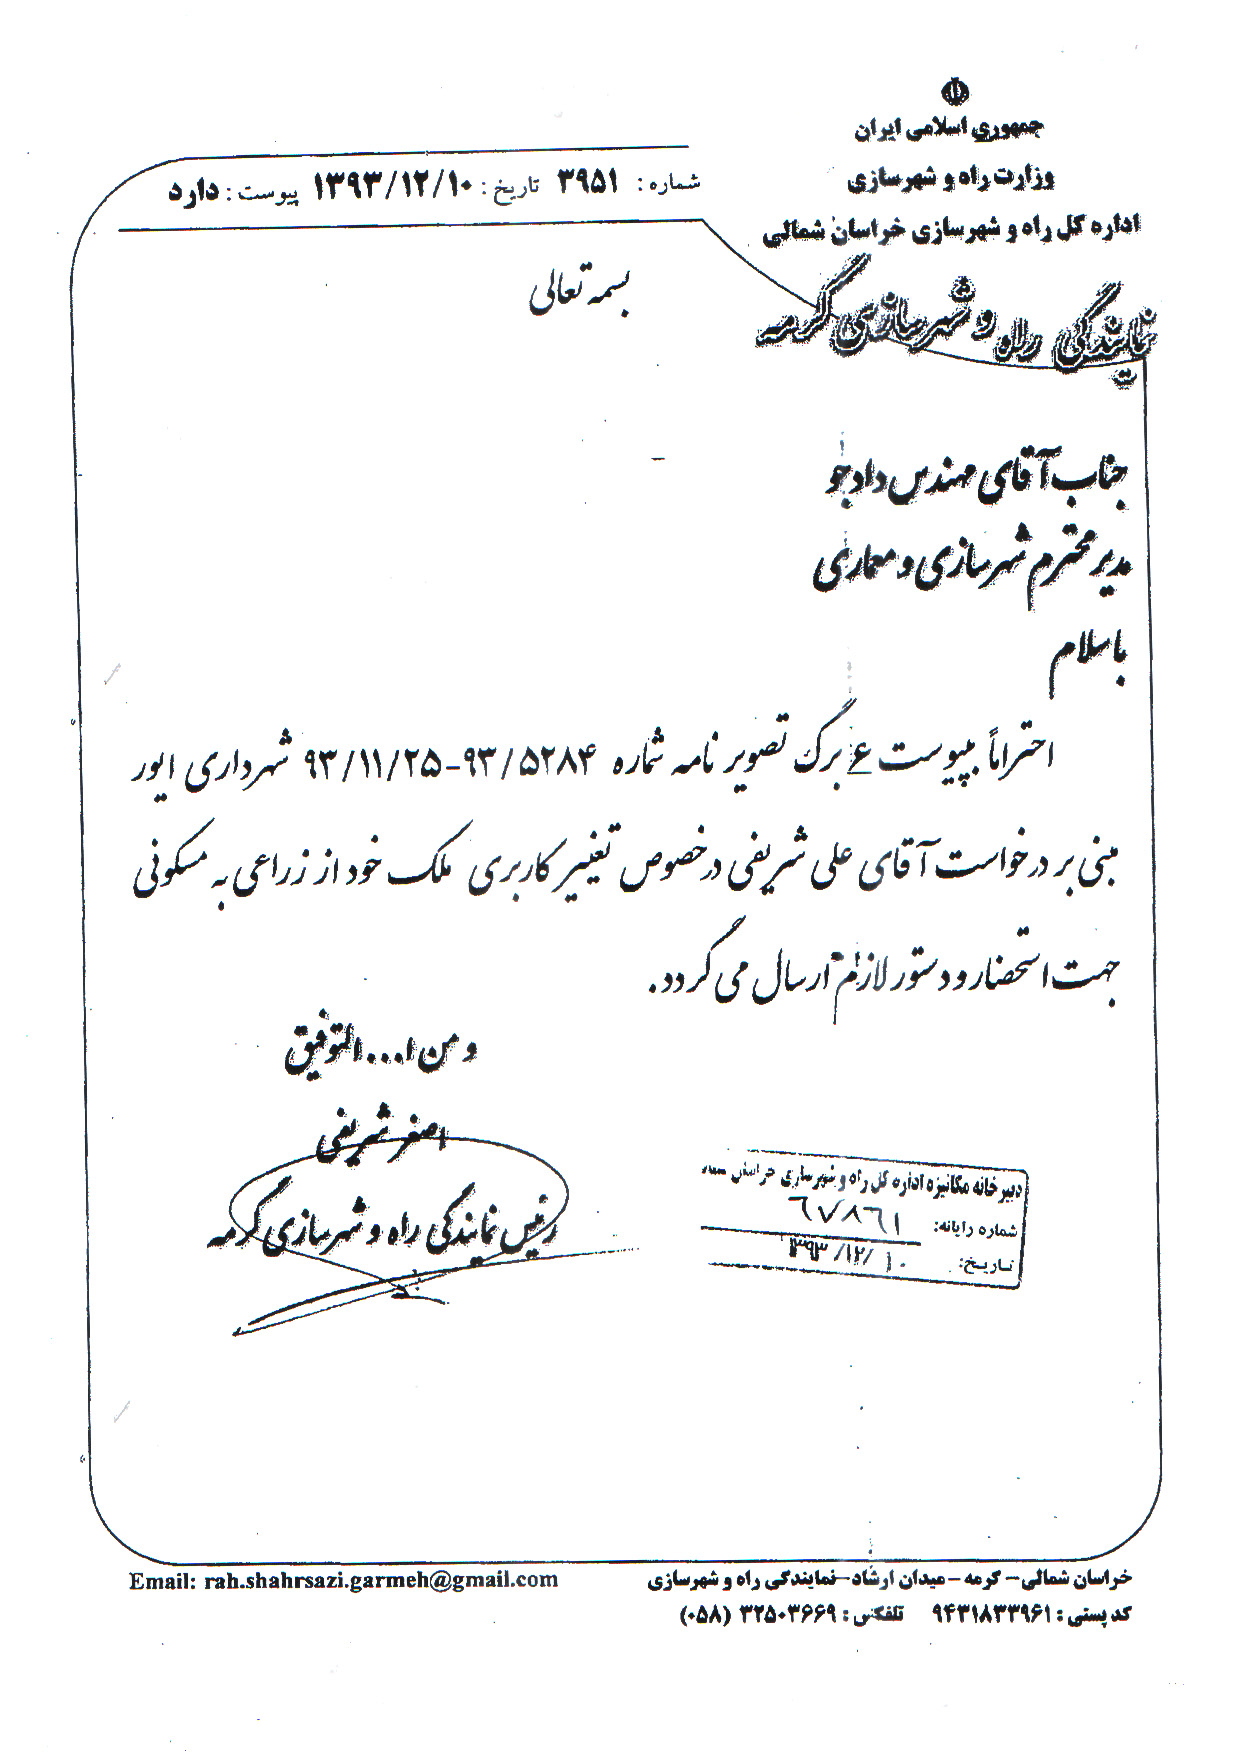 جمهوری اسلامی ایران
وزارت راه و شهرسازی
اداره کل راه و شهرسازی خراسان شمالی
نمایندگی راه و شهرسازی گرمه
شماره: ۳۹۵۱ تاریخ: ۱۳۹۳/۱۲/۱۰ پیوست: دارد
بسمه تعالی
جناب آقای مهندس دادجو
مدیر محترم شهرسازی و معماری
باسلام
احتراماً بپیوست ۶ برگ تصویر نامه شماره ۹۳/۵۲۸۴-۹۳/۱۱/۲۵ شهرداری ایور
مبنی بر درخواست آقای علی شریفی درخصوص تغییر کاربری ملک خود از زراعی به مسکونی
جهت استحضار و دستور لازم ارسال می گردد.
و من ا... التوفیق
اصغر شریفی
رئیس نمایندگی راه و شهرسازی گرمه
دبیرخانه مکانیزه اداره کل راه و شهرسازی خراسان
شماره رایانه: ۶۷۸۶۱
تاریخ: ۱۳۹۳/۱۲/۱۰
خراسان شمالی- گرمه -میدان ارشاد-نمایندگی راه و شهرسازی
Email: rah.shahrsazi.garmeh@gmail.com
کد پستی: ۹۴۳۱۸۳۳۹۶۱ تلفکس: ۳۲۵۰۳۶۶۹ (۰۵۸)